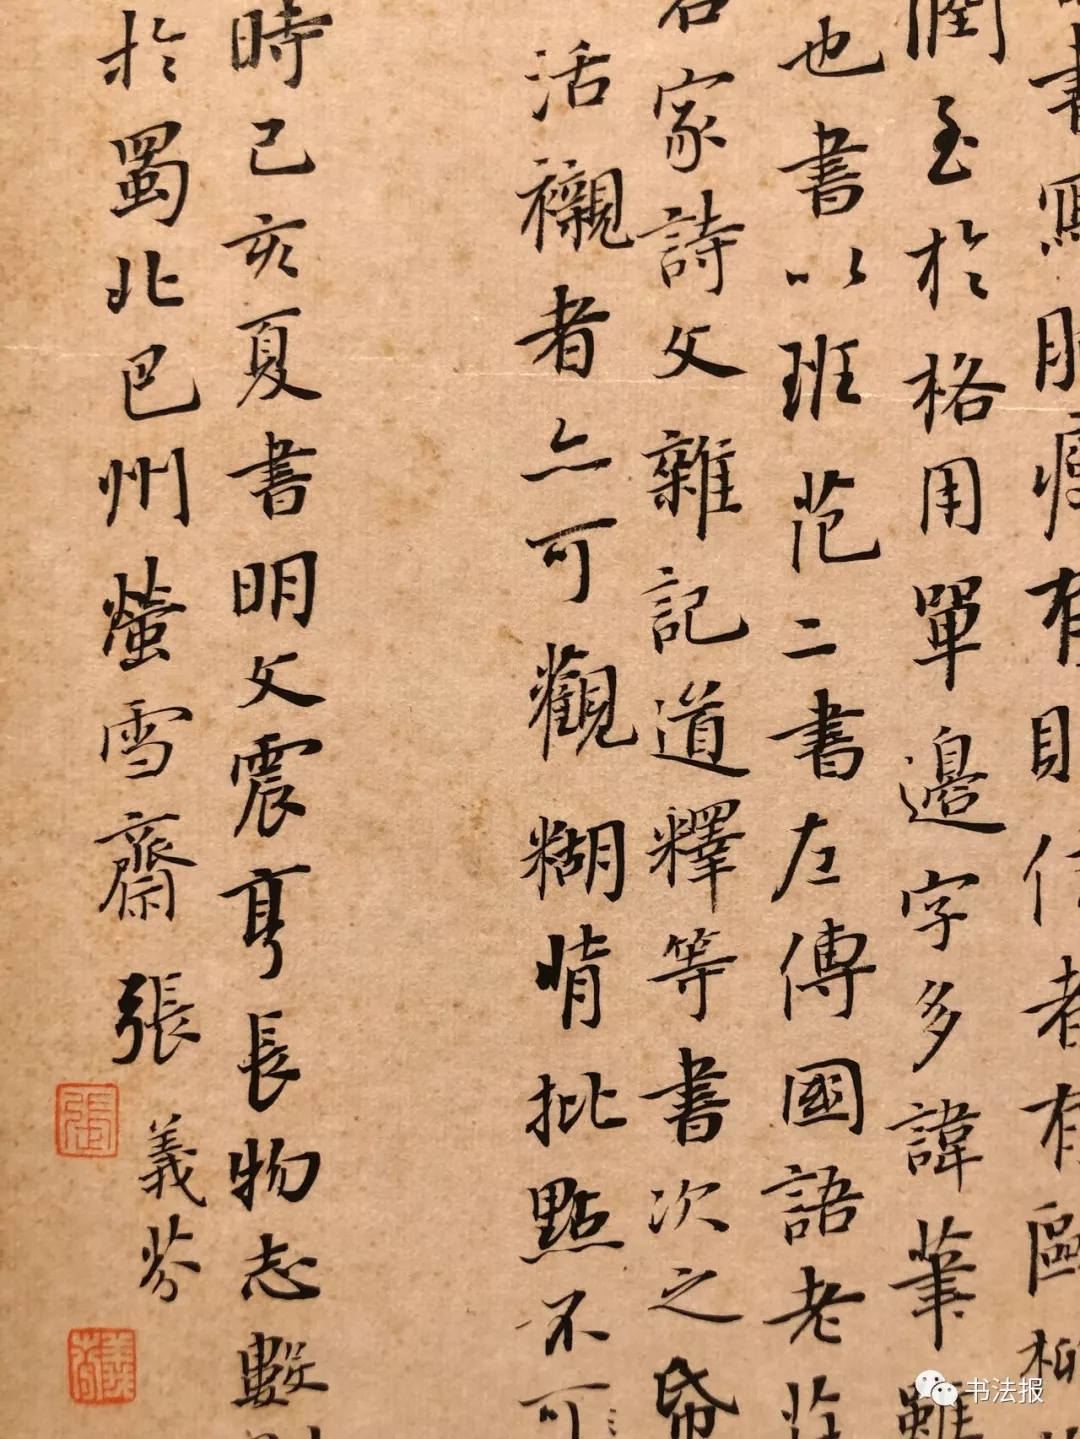 書寫肥瘦有則佳者有歐柳
潤至於格用單邊字多諱筆雖
也書以班范二書左傳國語老莊
名家詩文雜記道釋等書次之
活襯者亦可觀糊背批點不可
時己亥夏書明文震亨長物志數則
於蜀北巴州螢雪齋張義芬
书法报